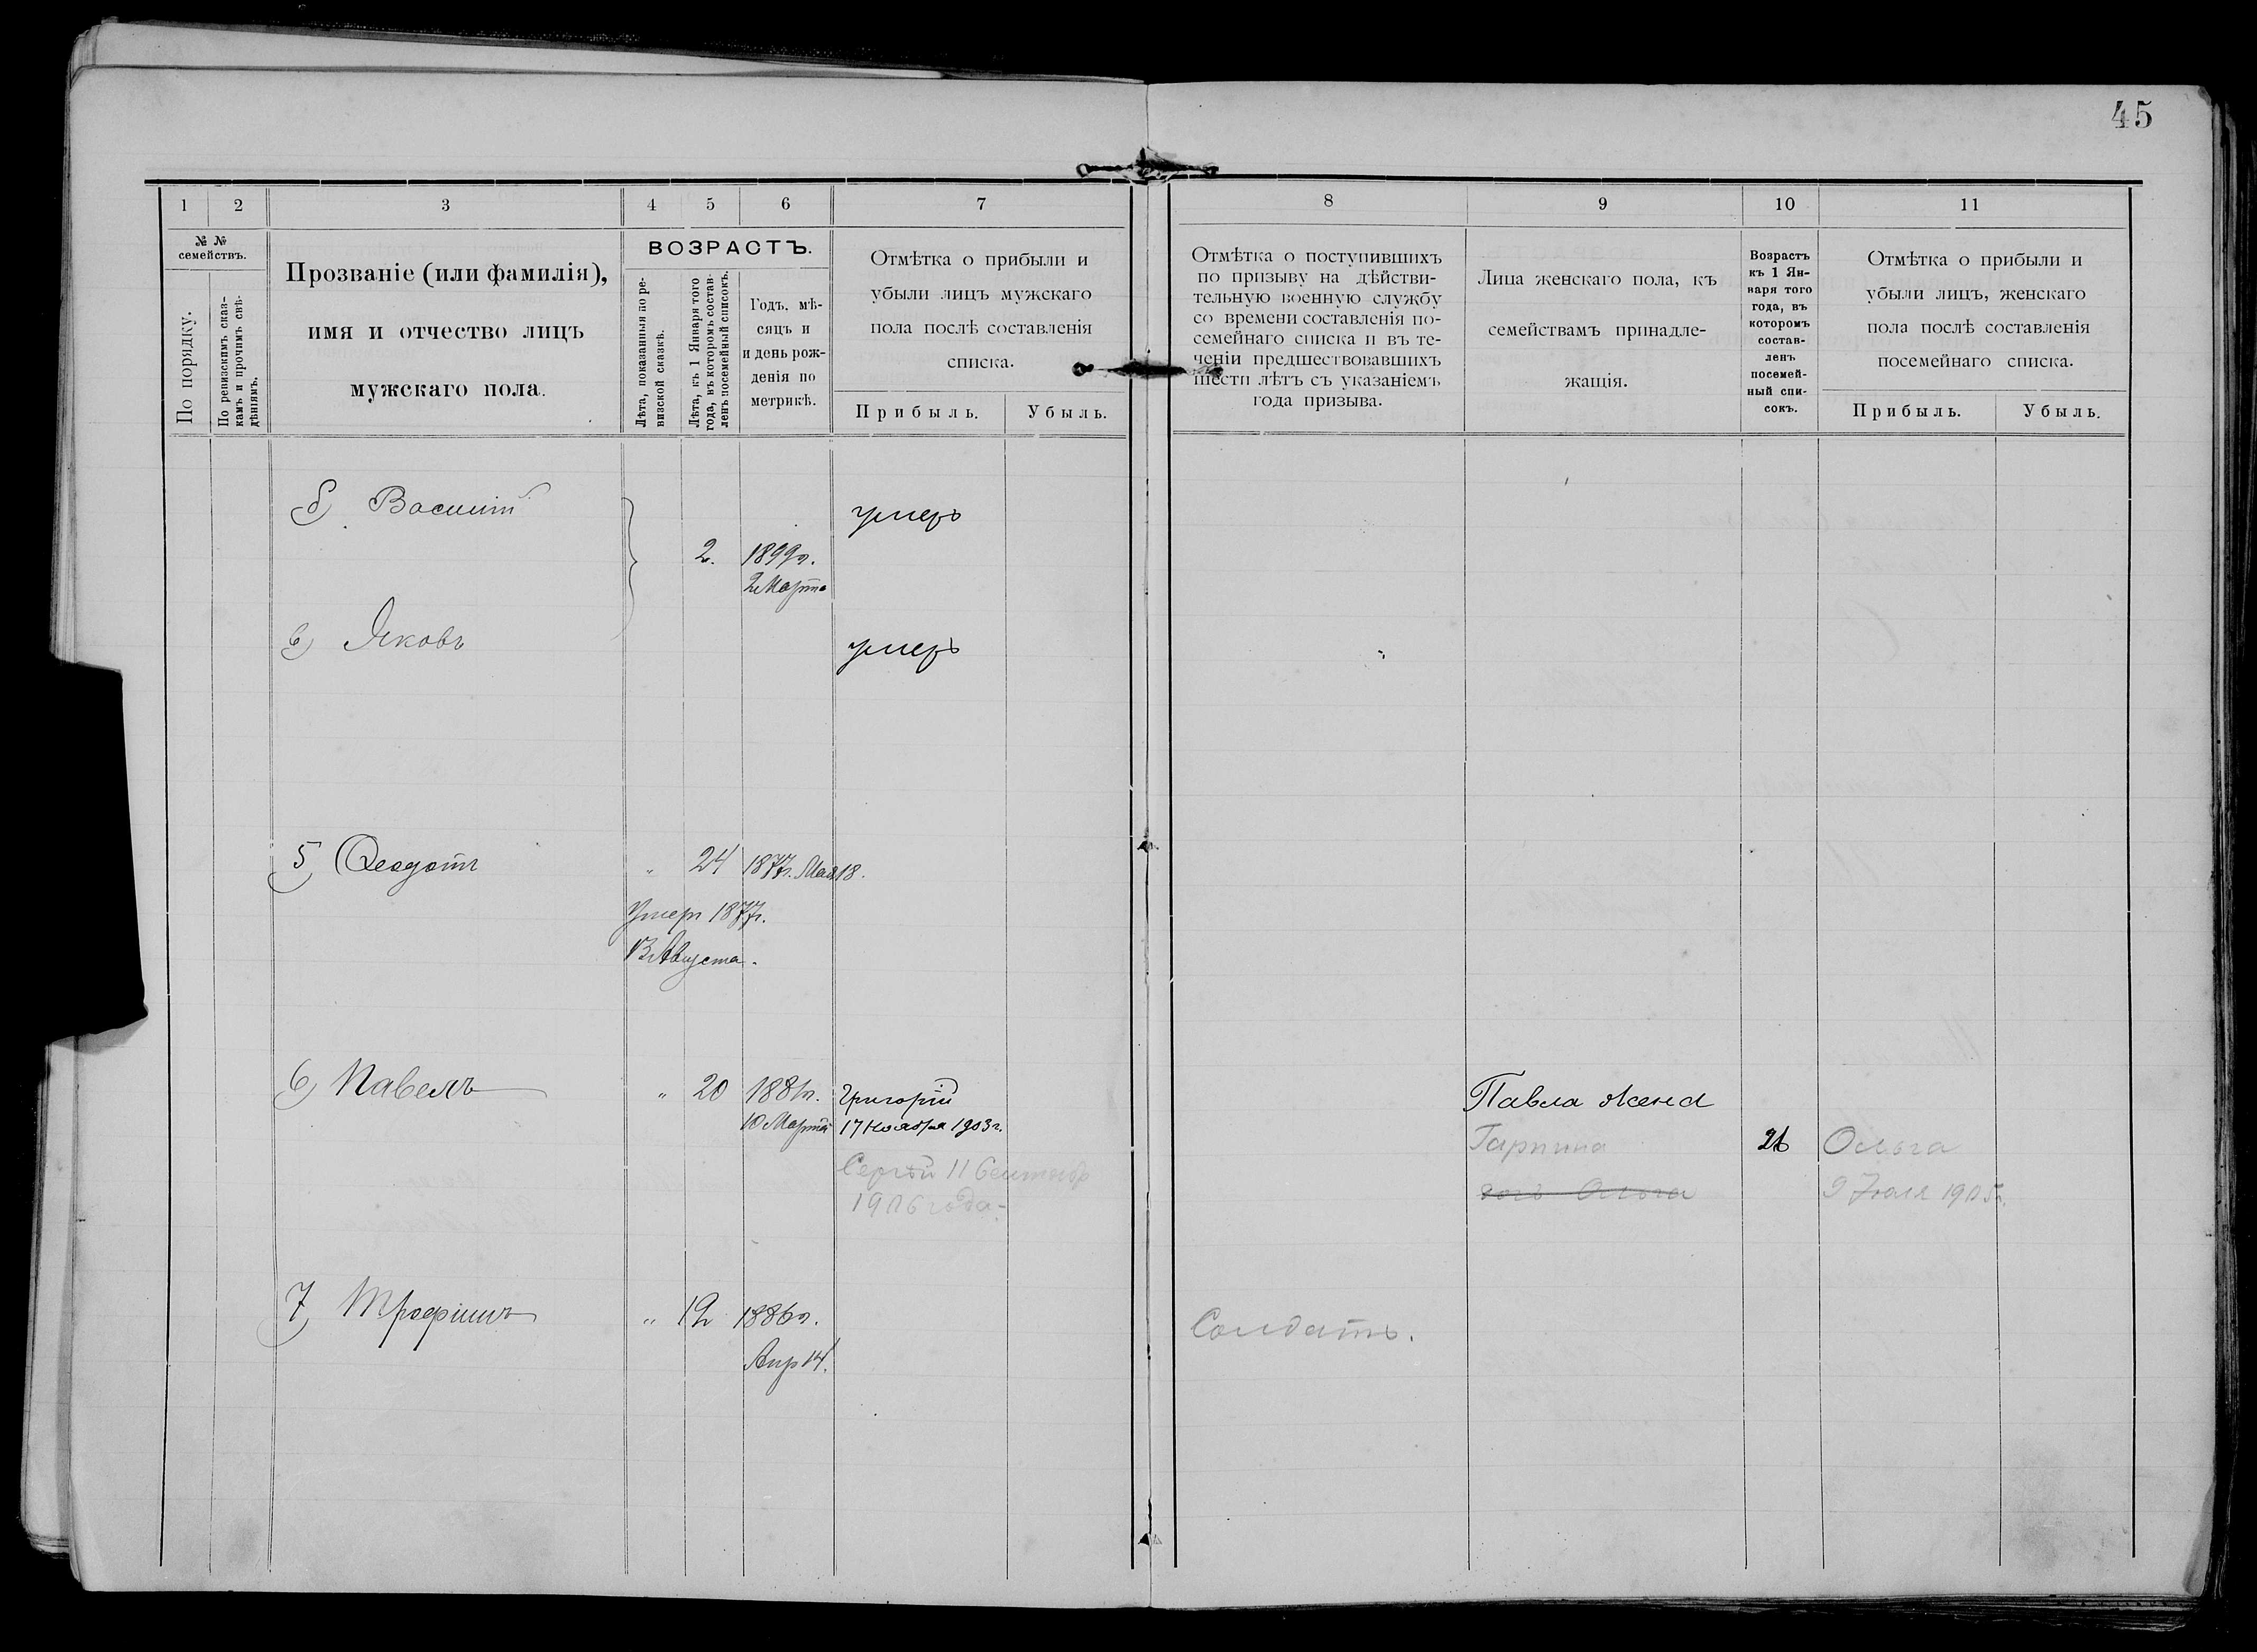 45
1 2 3 4 5 6 7 8 9 10 11
№ №
семействъ.
По порядку.
По ревизскимъ сказ-
камъ и прочимъ свѣ-
дѣніямъ.
Прозваніе (или фамилія),
имя и отчество лицъ
мужскаго пола.
ВОЗРАСТЪ.
Лѣта, показанныя по ре-
визской сказкѣ.
Лѣта, къ 1 Января того
года, въ которомъ состав-
ленъ посемейный списокъ.
Годъ, мѣ-
сяцъ и
и день рож-
денія по
метрикѣ.
Отмѣтка о прибыли и
убыли лицъ мужскаго
пола послѣ составленія
списка.
Прибыль. Убыль.
Отмѣтка о поступившихъ
по призыву на дѣйстви-
тельную военную службу
со времени составленія по-
семейнаго списка и въ те-
ченіи предшествовавшихъ
шести лѣтъ съ указаніемъ
года призыва.
Лица женскаго пола, къ
семействамъ принадле-
жащія.
Возрастъ
къ 1 Ян-
варя того
года, въ
которомъ
состав-
ленъ
посемей-
ный спи-
сокъ.
Отмѣтка о прибыли и
убыли лицъ, женскаго
пола послѣ составленія
посемейнаго списка.
Прибыль. Убыль.
б) Василій умеръ
2. 1899г.
2 Марта
в) Яковъ умеръ
5) Феодотъ " 24 1877г. Мая 18.
Умеръ 1877г.
13 Августа.
6) Павелъ " 20 1881г. Григорій Павла жена
10 Марта 17 Ноября 1903г. Гарпина 21 Ольга
Сергѣй 11 Сентябр дочь Ольга 9 Іюля 1905г.
1906 года
7) Трофимъ " 12 1886г. Солдатъ.
Апр 14.